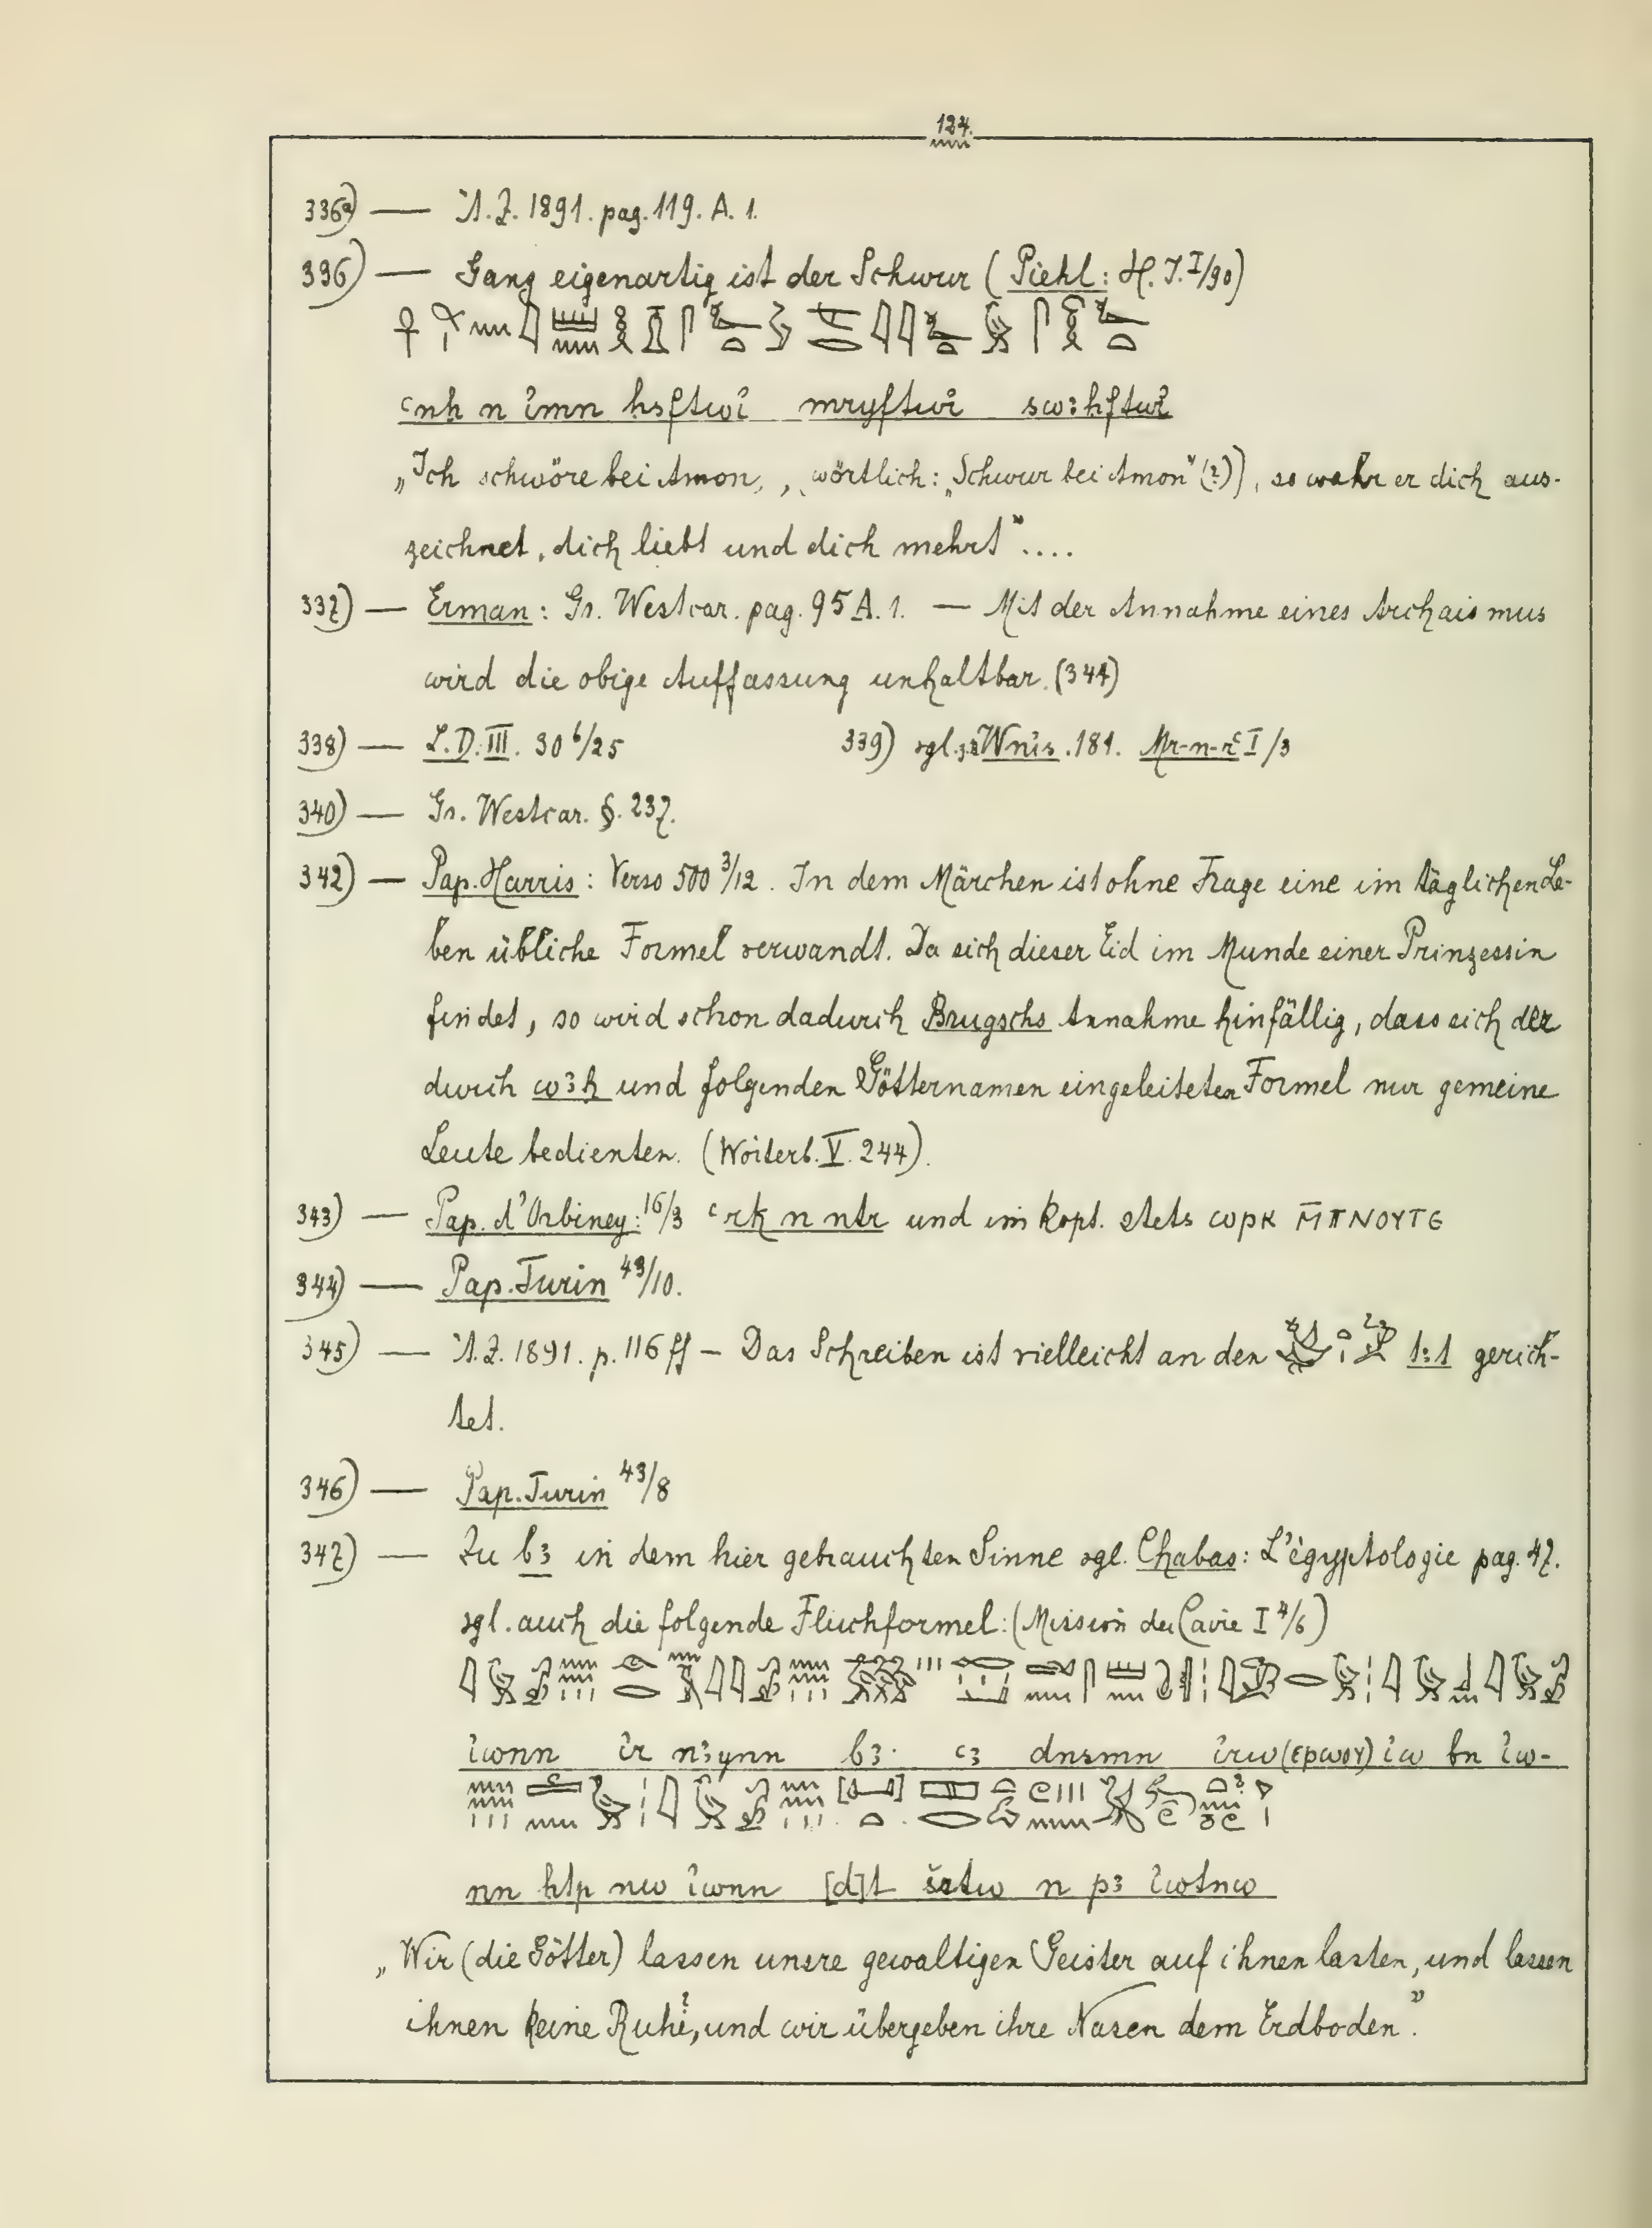 124.
336a) — Ä.Z. 1891. pag. 119. A. 1.
336) — Ganz eigenartig ist der Schwur (Piehl: H.I. I/90)
ꜥnḫ n i̓mn ḥsftwi̓ mryftwi̓ swꜣḥftwi̓
„Ich schwöre bei Amon, (wörtlich: „Schwur bei Amon" (?)), so wahr er dich aus-
zeichnet, dich liebt und dich mehrt"....
337) — Erman: Gr. Westcar. pag. 95 A. 1. — Mit der Annahme eines Archaismus
wird die obige Auffassung unhaltbar. (344)
338) — L.D. III. 30 b/25 339) vgl. z. Wni̓s. 181. Mr-n-rꜥ I/3
340) — Gr. Westcar. §. 237.
342) — Pap. Harris: Verso 500 3/12. In dem Märchen ist ohne Frage eine im täglichen Le-
ben übliche Formel verwandt. Da sich dieser Eid im Munde einer Prinzessin
findet, so wird schon dadurch Brugschs Annahme hinfällig, dass sich der
durch wꜣḥ und folgenden Götternamen eingeleiteten Formel nur gemeine
Leute bedienten. (Wörterb. V. 244).
343) — Pap. d'Orbiney: 16/3 ꜥrk n ntr und im kopt. stets ⲱⲣⲕ ⲙ̄ⲡⲛⲟⲩⲧⲉ
344) — Pap. Turin 43/10.
345) — Ä.Z. 1891. p. 116 ff – Das Schreiben ist vielleicht an den tꜣt gerich-
tet.
346) — Pap. Turin 43/8
347) — Zu bꜣ in dem hier gebrauchten Sinne vgl. Chabas: L'égyptologie pag. 47.
vgl. auch die folgende Fluchformel: (Mission du Caire I 4/6)
i̓wnn i̓r nꜣynn bꜣ ꜥꜣ dnsmn i̓rw (ⲉⲣⲱⲟⲩ) i̓w bn i̓w-
nn ḥtp nw i̓wnn [d]t šrtw n pꜣ i̓wtnw
„Wir (die Götter) lassen unsre gewaltigen Geister auf ihnen lasten, und lassen
ihnen keine Ruhe?, und wir übergeben ihre Nasen dem Erdboden".